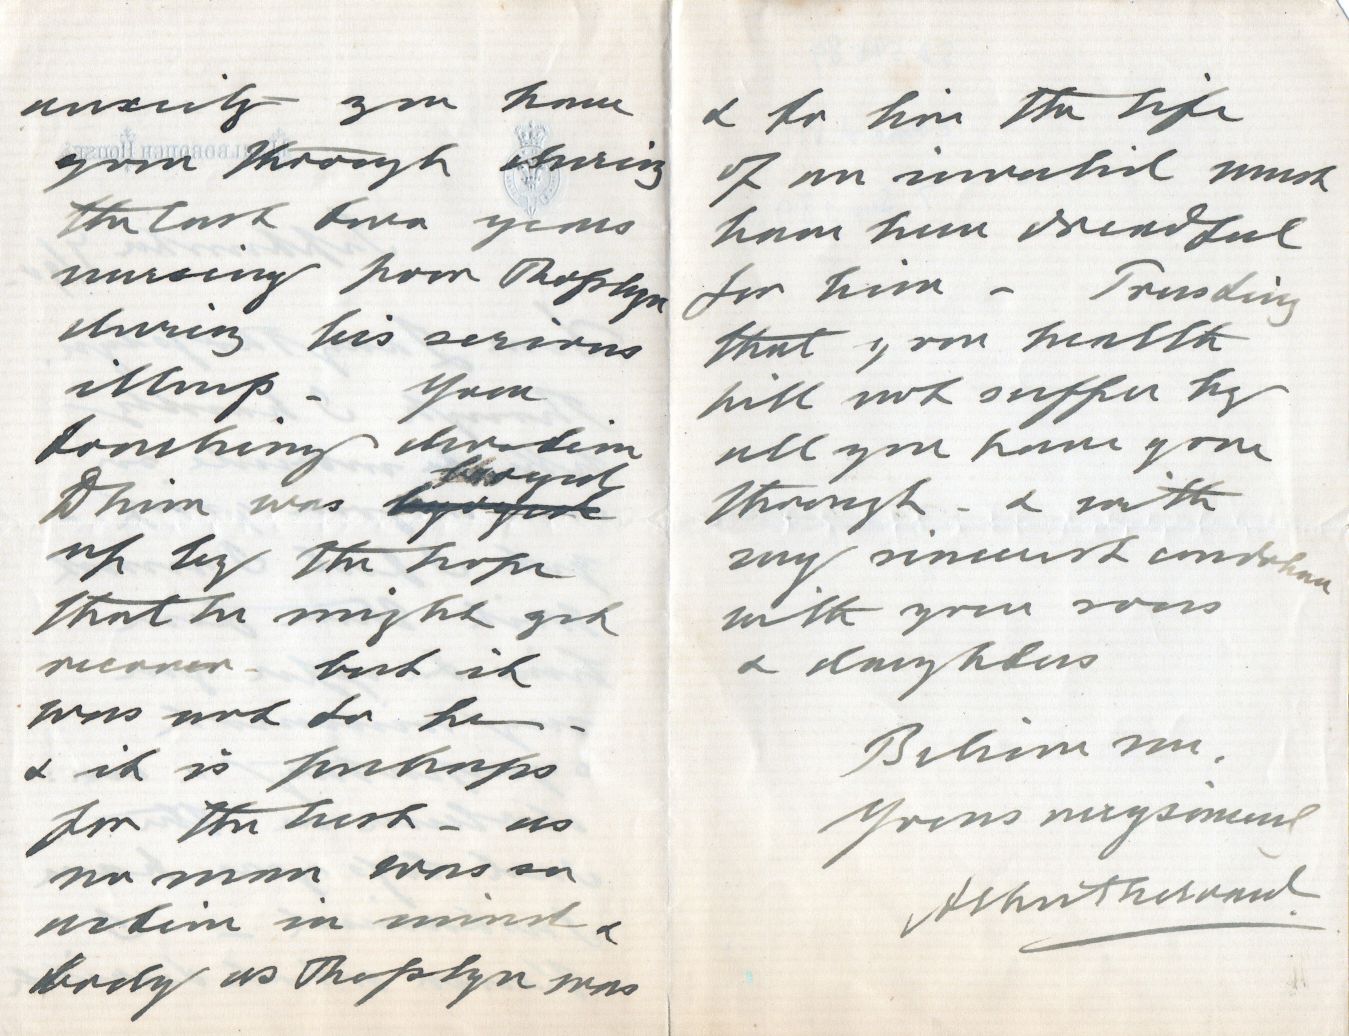 anxiety you have
gone through during
the last two years
nursing poor Mostyn
during his serious
illness - Your
touching devotion
to him was buoyed
up by the hope
that he might get
recover - but it
was not to be -
& it is perhaps
for the best - as
no man was so
active in mind &
body as Mostyn was
& to him the life
of an invalid must
have been dreadful
for him - Trusting
that your health
will not suffer by
all you have gone
through - & with
my sincerest condolence
with your sons
& daughters
Believe me,
Yours very sincerely
Albert Edward
MARLBOROUGH HOUSE